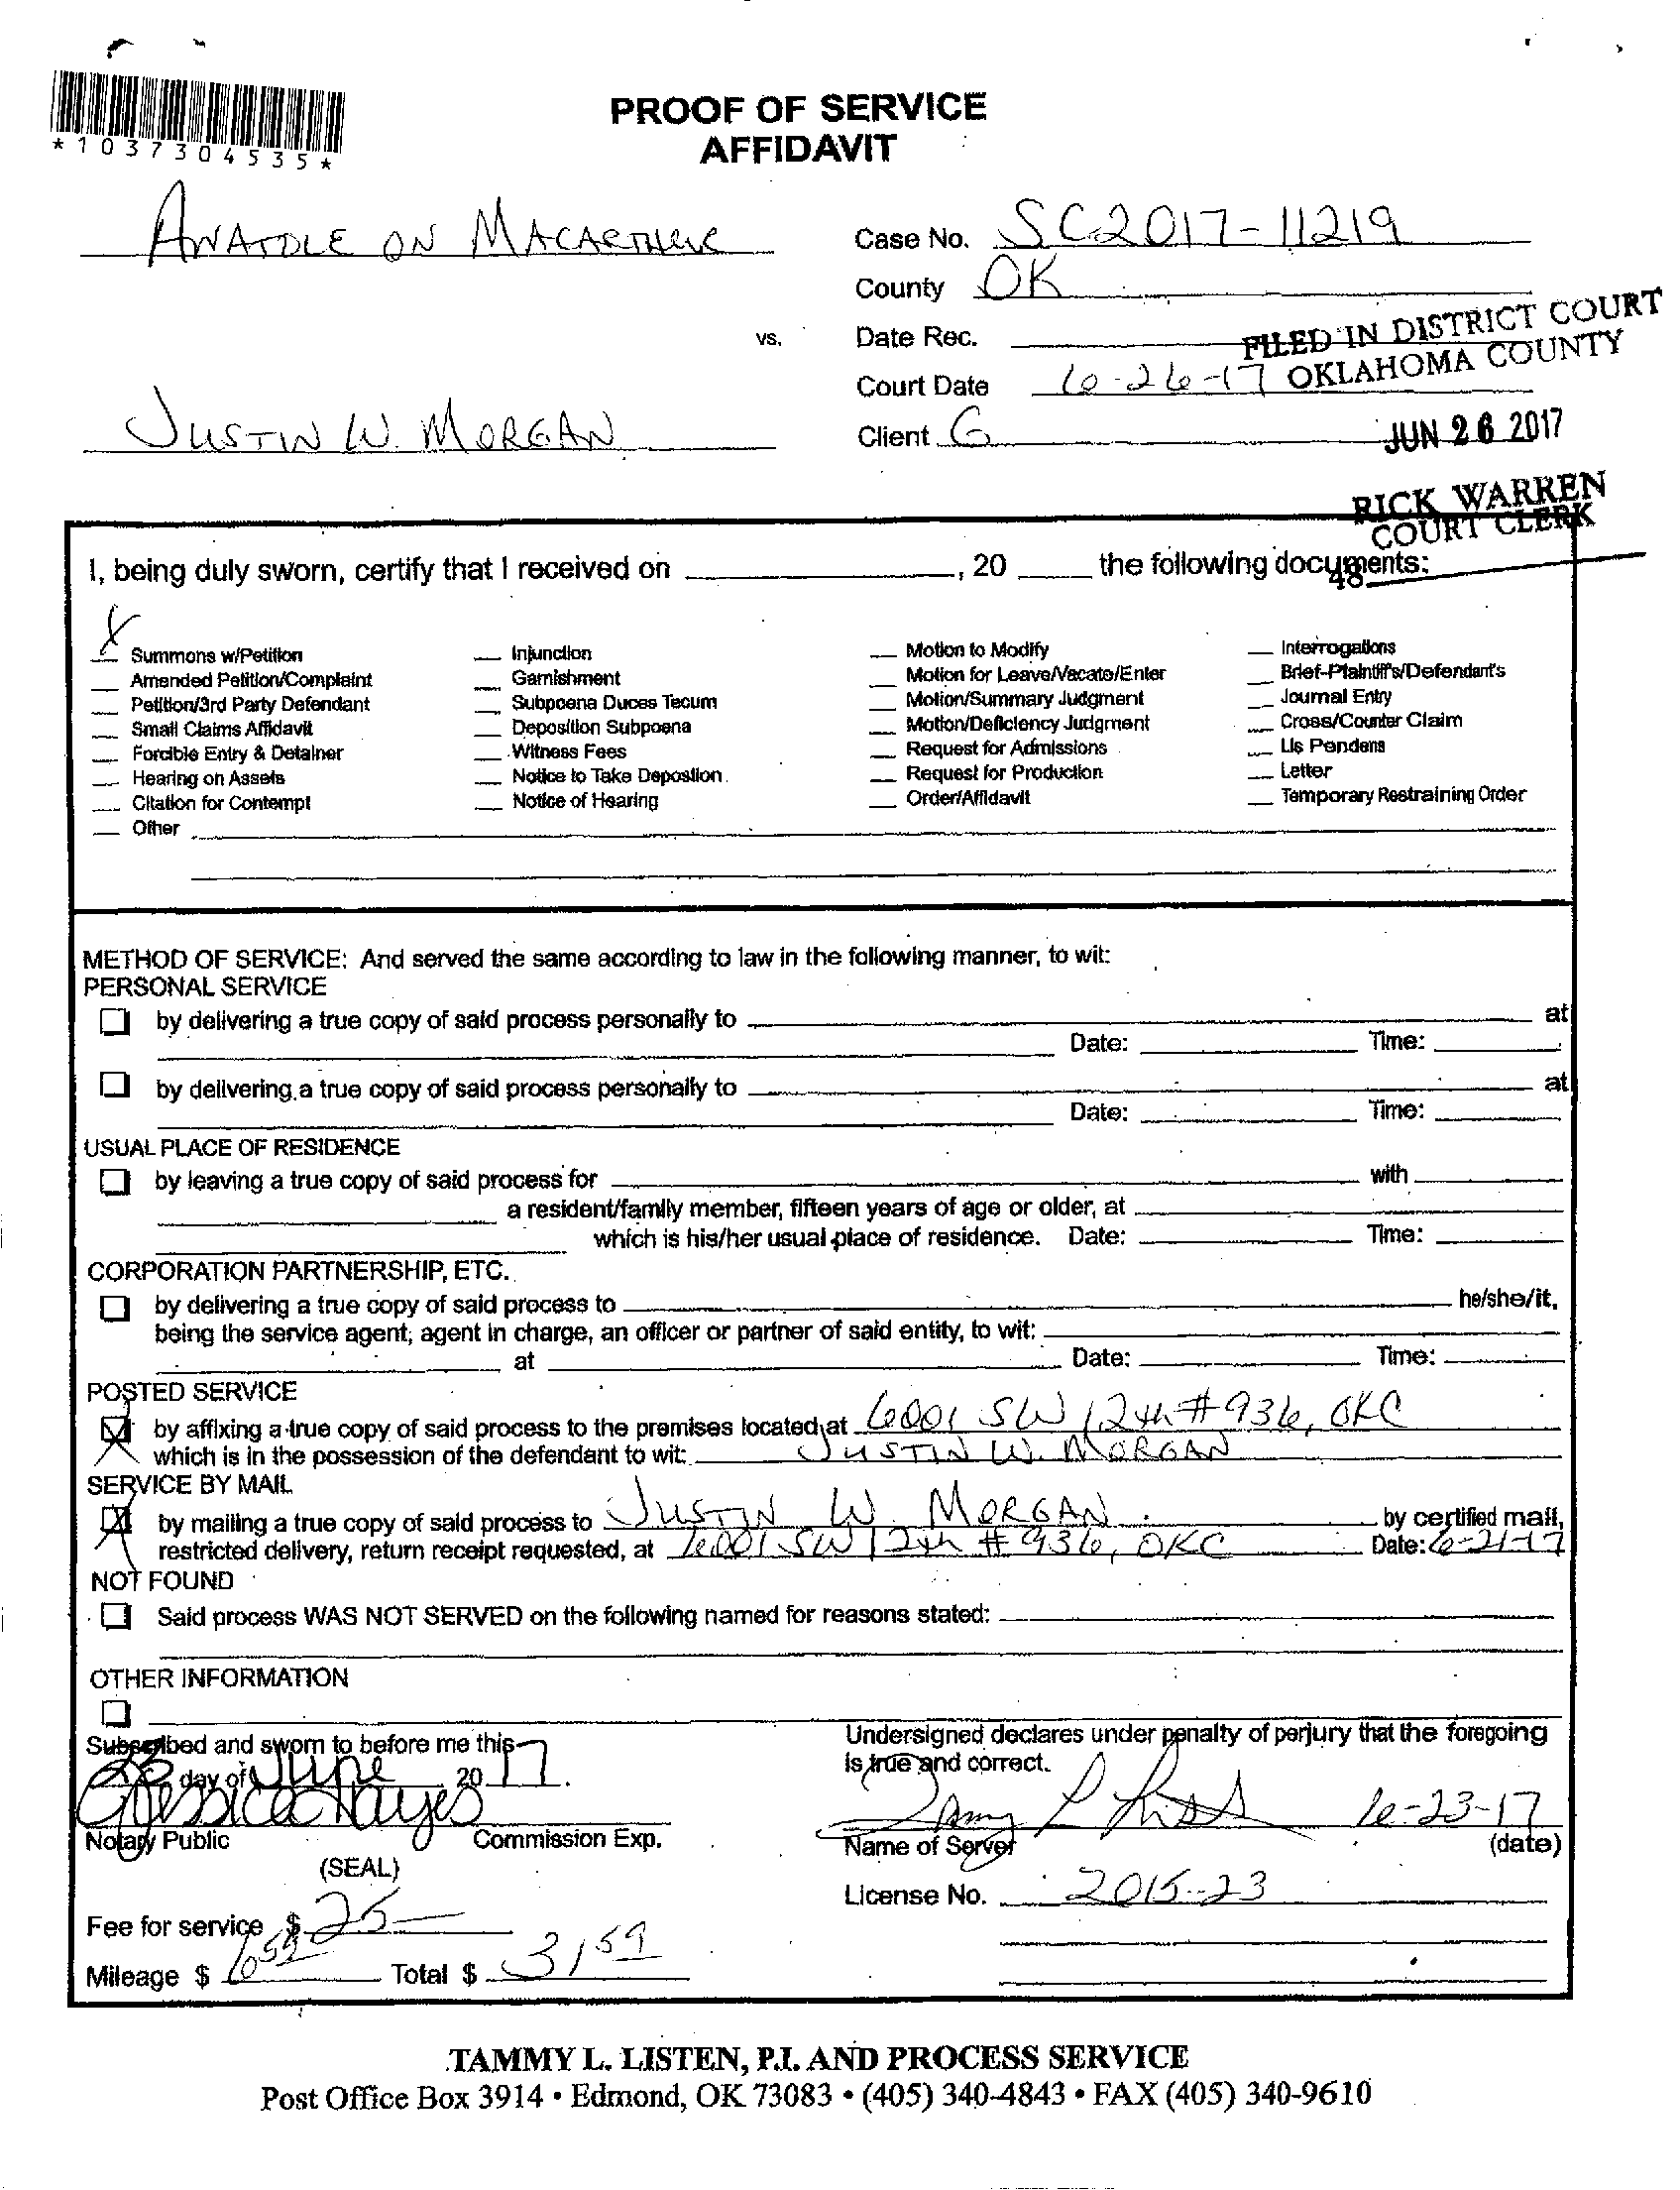 *1037304535*
PROOF OF SERVICE
AFFIDAVIT
ANATOLE ON MACARTHUR
Case No. SC2017-11219
County OK
vs.
Date Rec.
FILED IN DISTRICT COURT
OKLAHOMA COUNTY
Court Date 6-26-17
JUSTIN W. MORGAN
Client G
JUN 26 2017
RICK WARREN
COURT CLERK
48
I, being duly sworn, certify that I received on , 20 the following documents:
X Summons w/Petition
Amended Petition/Complaint
Petition/3rd Party Defendant
Small Claims Affidavit
Forcible Entry & Detainer
Hearing on Assets
Citation for Contempt
Other
Injunction
Garnishment
Subpoena Duces Tecum
Deposition Subpoena
Witness Fees
Notice to Take Deposition
Notice of Hearing
Motion to Modify
Motion for Leave/Vacate/Enter
Motion/Summary Judgment
Motion/Deficiency Judgment
Request for Admissions
Request for Production
Order/Affidavit
Interrogations
Brief-Plaintiff's/Defendant's
Journal Entry
Cross/Counter Claim
Lis Pendens
Letter
Temporary Restraining Order
METHOD OF SERVICE: And served the same according to law in the following manner, to wit:
PERSONAL SERVICE
by delivering a true copy of said process personally to at
Date: Time:
by delivering a true copy of said process personally to at
Date: Time:
USUAL PLACE OF RESIDENCE
by leaving a true copy of said process for with
a resident/family member, fifteen years of age or older, at
which is his/her usual place of residence. Date: Time:
CORPORATION PARTNERSHIP, ETC.
by delivering a true copy of said process to he/she/it,
being the service agent, agent in charge, an officer or partner of said entity, to wit:
at Date: Time:
POSTED SERVICE
X by affixing a true copy of said process to the premises located at 6001 SW 12th #936, OKC
which is in the possession of the defendant to wit: JUSTIN W. MORGAN
SERVICE BY MAIL
X by mailing a true copy of said process to JUSTIN W. MORGAN by certified mail,
restricted delivery, return receipt requested, at 6001 SW 12th #936, OKC Date: 6-21-17
NOT FOUND
Said process WAS NOT SERVED on the following named for reasons stated:
OTHER INFORMATION
Subscribed and sworn to before me this
23 day of June 2017.
Jessica Hayes
Notary Public Commission Exp.
(SEAL)
Undersigned declares under penalty of perjury that the foregoing
is true and correct.
Tammy L 6-23-17
Name of Server (date)
License No. 2015-23
Fee for service $ 25-
Mileage $ 6 59 Total $ 31 59
TAMMY L. LISTEN, P.I. AND PROCESS SERVICE
Post Office Box 3914 • Edmond, OK 73083 • (405) 340-4843 • FAX (405) 340-9610